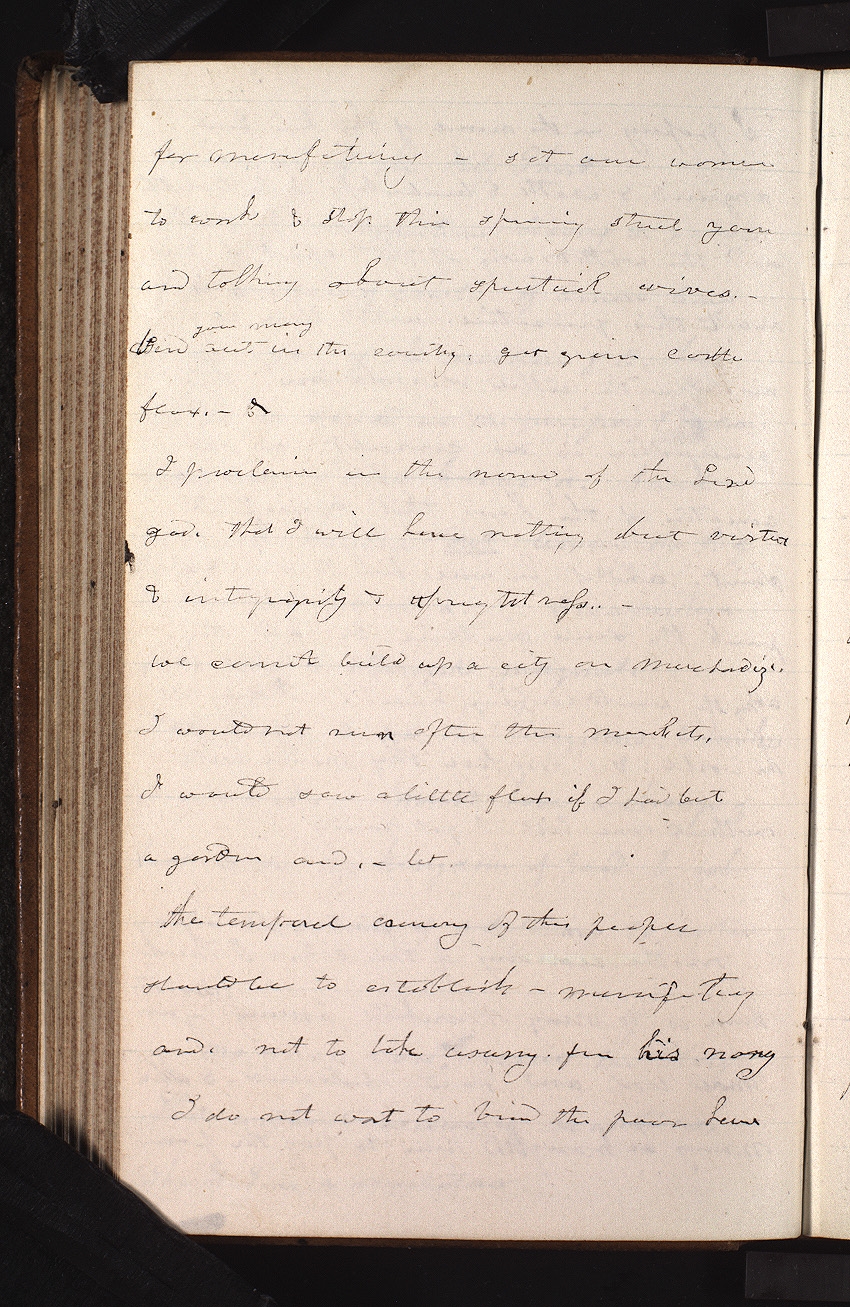 for manifetuing – set our women
to work & stop this spining street yarn
and talking about spiritual wives.–
your mony
Send out in the country. get grain cattle
flax.– &
I proclaim in the name of the Lord
god. that I will have nothing but virtue
& integrity & uprightness.. –
we cannot build up a city on merchadiz.
I would not run after the markets.
I would sow a little flax if I had but
a garden and.– let.
the temporal econmy of this people
should be to establish – manifeting
and. not to take usury. for his mony
I do not want to bind the poor here